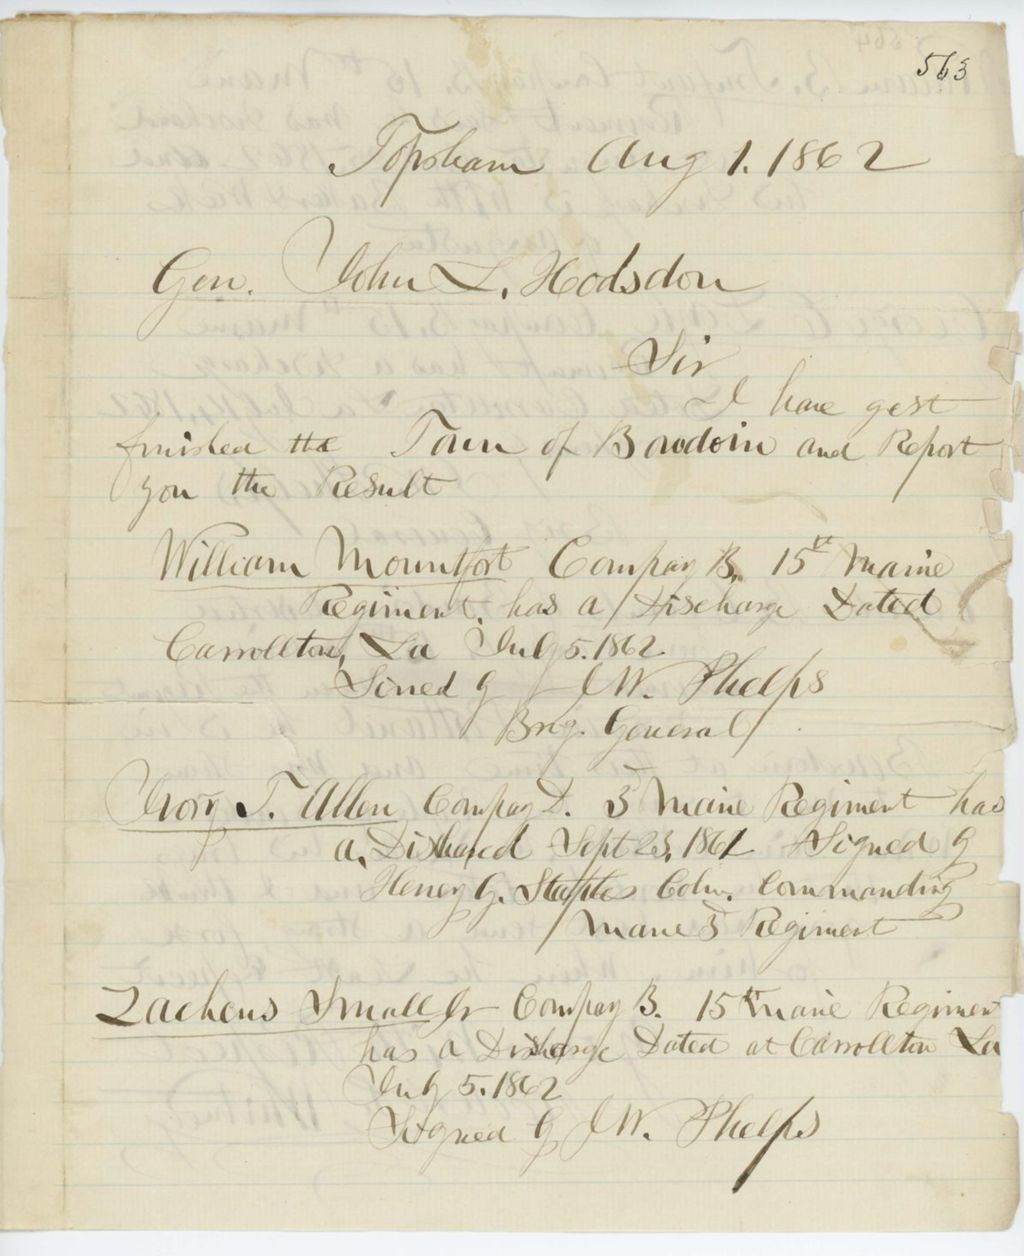 563
Topsham Aug 1. 1862
Gen. John L. Hodsdon
Sir
I have gest
finished the Town of Bowdoin and Report
you the Result
William Mountfort Compay B. 15th Maine
Regiment. has a Discharge Dated
Carrollton, La July 5. 1862
Sined by J W. Phelps
Brig. General
Ivory T. Allen Compay D. 3 Maine Regiment has
a, Discharged Sept 23, 1861 Signed by
Henry G. Staples Coln. Commanding
Maine 3 Regiment
Zacheus Small Jr Compay B. 15th Maine Regiment
has a Discharge Dated at Carrollton La
July 5. 1862
Signed by J W. Phelps